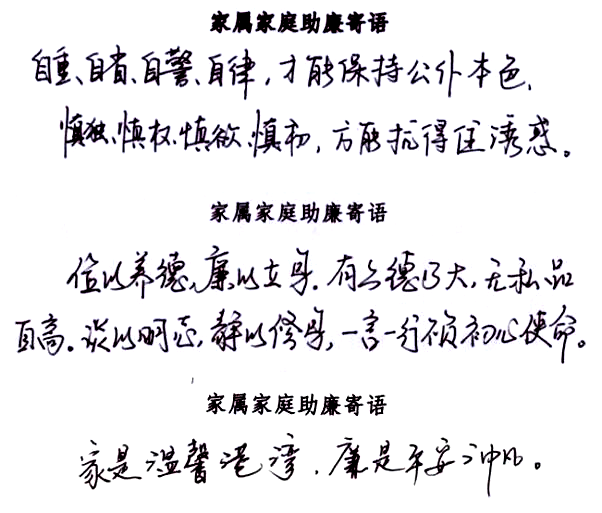 家属家庭助廉寄语
自重、自省、自警、自律，才能保持公仆本色，
慎独、慎权、慎欲、慎初，方能抗得住诱惑。
家属家庭助廉寄语
俭以养德，廉以立身。有公德乃大，无私品
自高。淡以明志，静以修身，一言一行顾初心使命。
家属家庭助廉寄语
家是温馨港湾，廉是平安